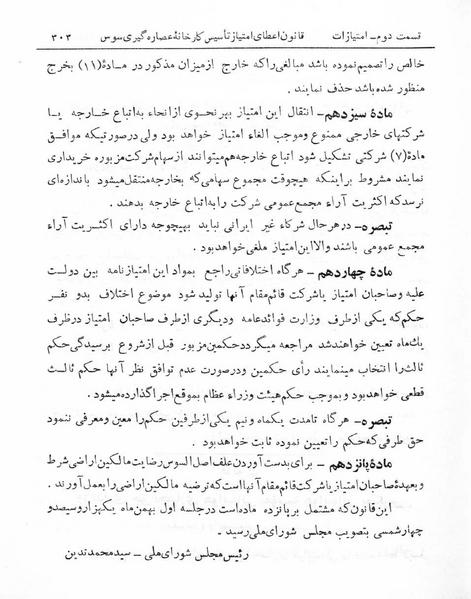 قسمت دوم - امتیازات قانون اعطای امتیاز تأسیس کارخانهٔ عصاره گیری سوس ۳۰۳
خالص را تصمیم نموده باشد مبالغی را که خارج از میزان مذکور در مادهٔ (۱۱) بخرج
منظور شده باشد حذف نمایند .
مادهٔ سیزدهم - انتقال این امتیاز بهر نحوی از انحاء به اتباع خارجه یا
شرکتهای خارجی ممنوع و موجب الغاء امتیاز خواهد بود ولی در صورتیکه موافق
مادهٔ (۷) شرکتی تشکیل شود اتباع خارجه هم میتوانند از سهام شرکت مزبوره خریداری
نمایند مشروط بر اینکه هیچوقت مجموع سهامی که بخارجه منتقل میشود باندازه‌ای
نرسد که اکثریت آراء مجمع عمومی شرکت را به اتباع خارجه بدهند .
تبصره - در هر حال شرکاء غیر ایرانی نباید بهیچوجه دارای اکثریت آراء
مجمع عمومی باشند والا این امتیاز ملغی خواهد بود .
مادهٔ چهاردهم - هر گاه اختلافاتی راجع بمواد این امتیاز نامه بین دولت
علیه و صاحبان امتیاز یا شرکت قائم مقام آنها تولید شود موضوع اختلاف بدو نفر
حکم که یکی از طرف وزارت فوائد عامه و دیگری از طرف صاحبان امتیاز در ظرف
یك ماه تعیین خواهند شد مراجعه میگردد حکمین مزبور قبل از شروع برسیدگی حکم
ثالث را انتخاب مینمایند رأی حکمین و در صورت عدم توافق نظر آنها حکم ثالث
قطعی خواهد بود و بموجب حکم هیئت وزراء عظام بموقع اجرا گذارده میشود .
تبصره - هر گاه تا مدت یکماه و نیم یکی از طرفین حکم را معین و معرفی ننمود
حق طرفی که حکم را تعیین نموده ثابت خواهد بود .
مادهٔ پانزدهم - برای بدست آوردن علف اصل السوس رضایت مالکین اراضی شرط
و بعهدهٔ صاحبان امتیاز یا شرکت قائم مقام آنها است که ترضیه مالکین اراضی را بعمل آورند .
این قانون که مشتمل بر پانزده ماده است در جلسه اول بهمن ماه یکهزار و سیصد و
چهار شمسی بتصویب مجلس شورای ملی رسید .
رئیس مجلس شورای ملی - سید محمد تدین